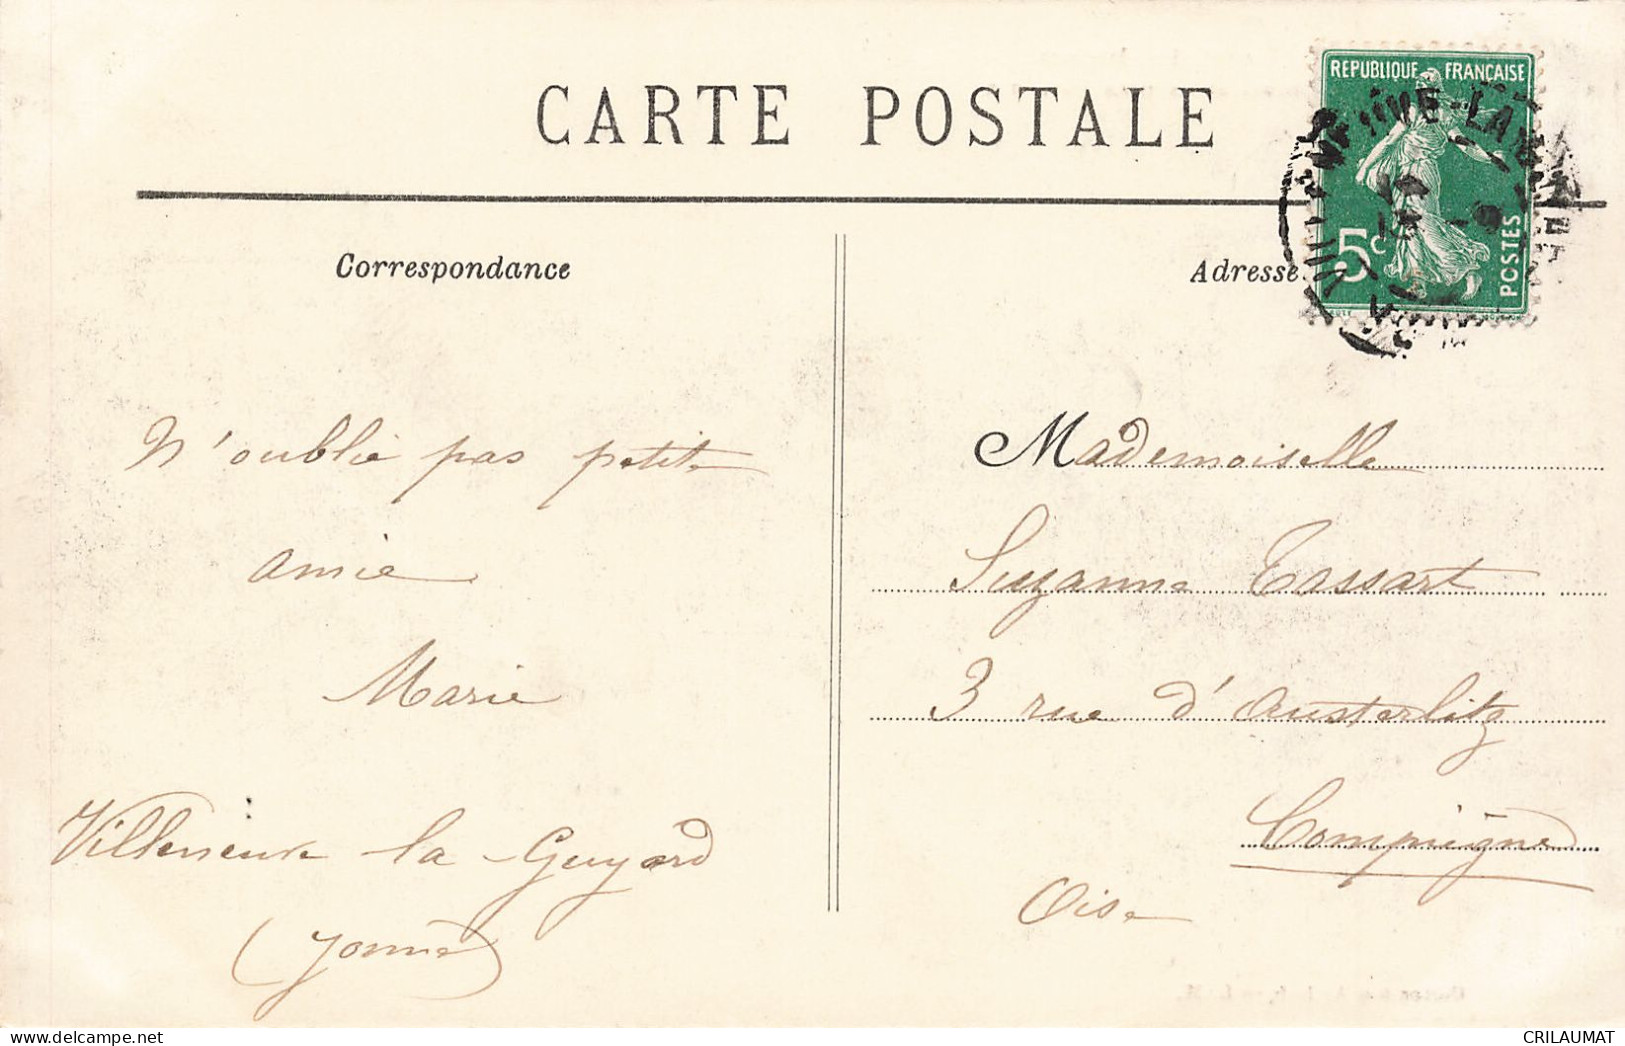 CARTE POSTALE
REPUBLIQUE FRANÇAISE
5c
POSTES
Correspondance
Adresse
N'oublie pas petite
amie
Marie
Villeneuve-la-Guyard
(Yonne)
Mademoiselle
Suzanne Tassart
3 rue d'Austerlitz
Compiègne
Oise
CRILAUMAT